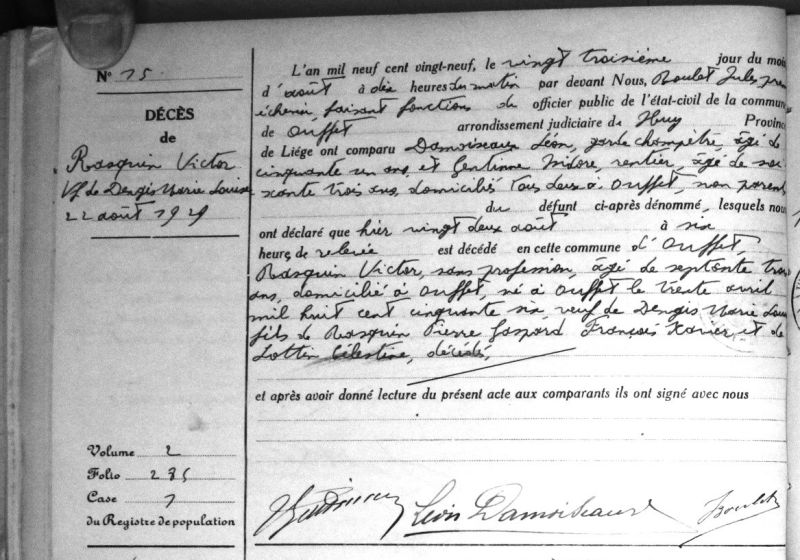 N° 15
DÉCÈS
de
Rasquin Victor
Vf de Dengis Marie Louise
22 août 1929
Volume 2
Folio 285
Case 7
du Registre de population
L'an mil neuf cent vingt-neuf, le vingt troisième jour du mois
d'août à dix heures du matin par devant Nous, Boulet Jules, pre
échevin, faisant fonctions de officier public de l'état-civil de la commune
de Ouffet arrondissement judiciaire de Huy Province
de Liége ont comparu Damoiseaux Léon, garde champêtre, âgé de
cinquante un ans, et Gentinne Isidore, rentier, âgé de soi
xante trois ans, domiciliés tous deux à Ouffet, non parents
du défunt ci-après dénommé, lesquels nous
ont déclaré que hier vingt deux août à six
heures de relevée est décédé en cette commune d'Ouffet,
Rasquin Victor, sans profession, âgé de septante trois
ans, domicilié à Ouffet, né à Ouffet le trente avril
mil huit cent cinquante six, veuf de Dengis Marie Louise
fils de Rasquin Pierre Gaspard François Xavier, et de
Lottin Célestine, décédés,
et après avoir donné lecture du présent acte aux comparants ils ont signé avec nous
Léon Damoiseaux JBoulet